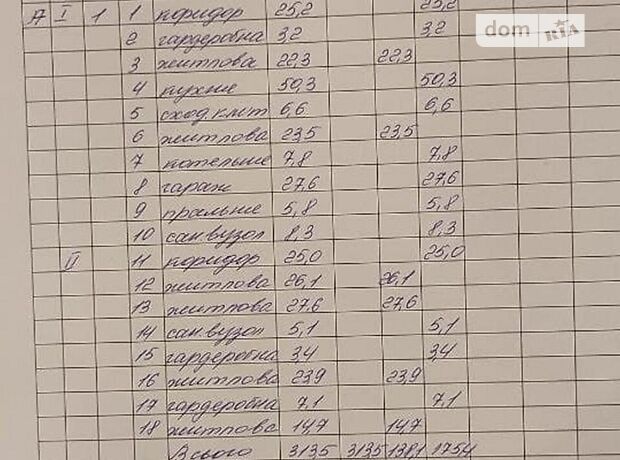 А I 1 1 коридор 25,2 25,2
2 гардеробна 3,2 3,2
3 житлова 22,3 22,3
4 кухне 50,3 50,3
5 сход.кліт 6,6 6,6
6 житлова 23,5 23,5
7 котельне 7,8 7,8
8 гараж 27,6 27,6
9 пральне 5,8 5,8
10 сан.вузол 8,3 8,3
II 11 коридор 25,0 25,0
12 житлова 26,1 26,1
13 житлова 27,6 27,6
14 сан.вузол 5,1 5,1
15 гардеробна 3,4 3,4
16 житлова 23,9 23,9
17 гардеробна 7,1 7,1
18 житлова 14,7 14,7
Всього 313,5 313,5 138,1 175,4
dom RIA